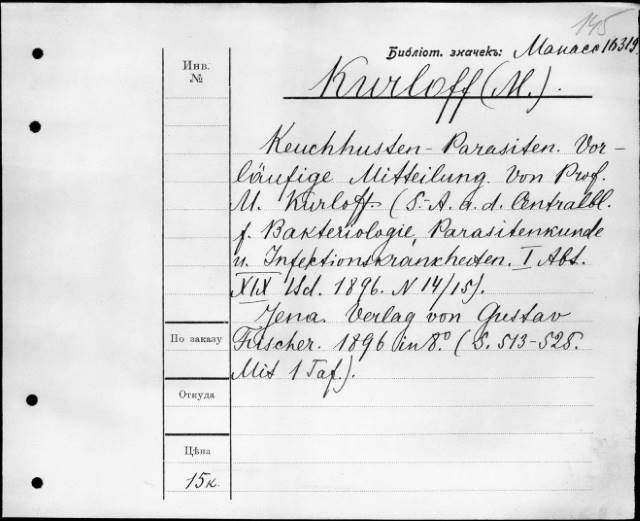 145
Библіот. значекъ: Манасс 16319.
Инв.
№
Kurloff (M.).
Keuchhusten-Parasiten. Vor-
läufige Mitteilung. Von Prof.
M. Kurloff (S.-A. a. d. Centralbl.
f. Bakteriologie, Parasitenkunde
u. Infektionskrankheiten. I Abt.
XIX Bd. 1896. N 14/15).
Jena. Verlag von Gustav
По заказу
Fischer. 1896 in 8.° (S. 513-528.
Mit 1 Taf.).
Откуда
Цѣна
15 к.